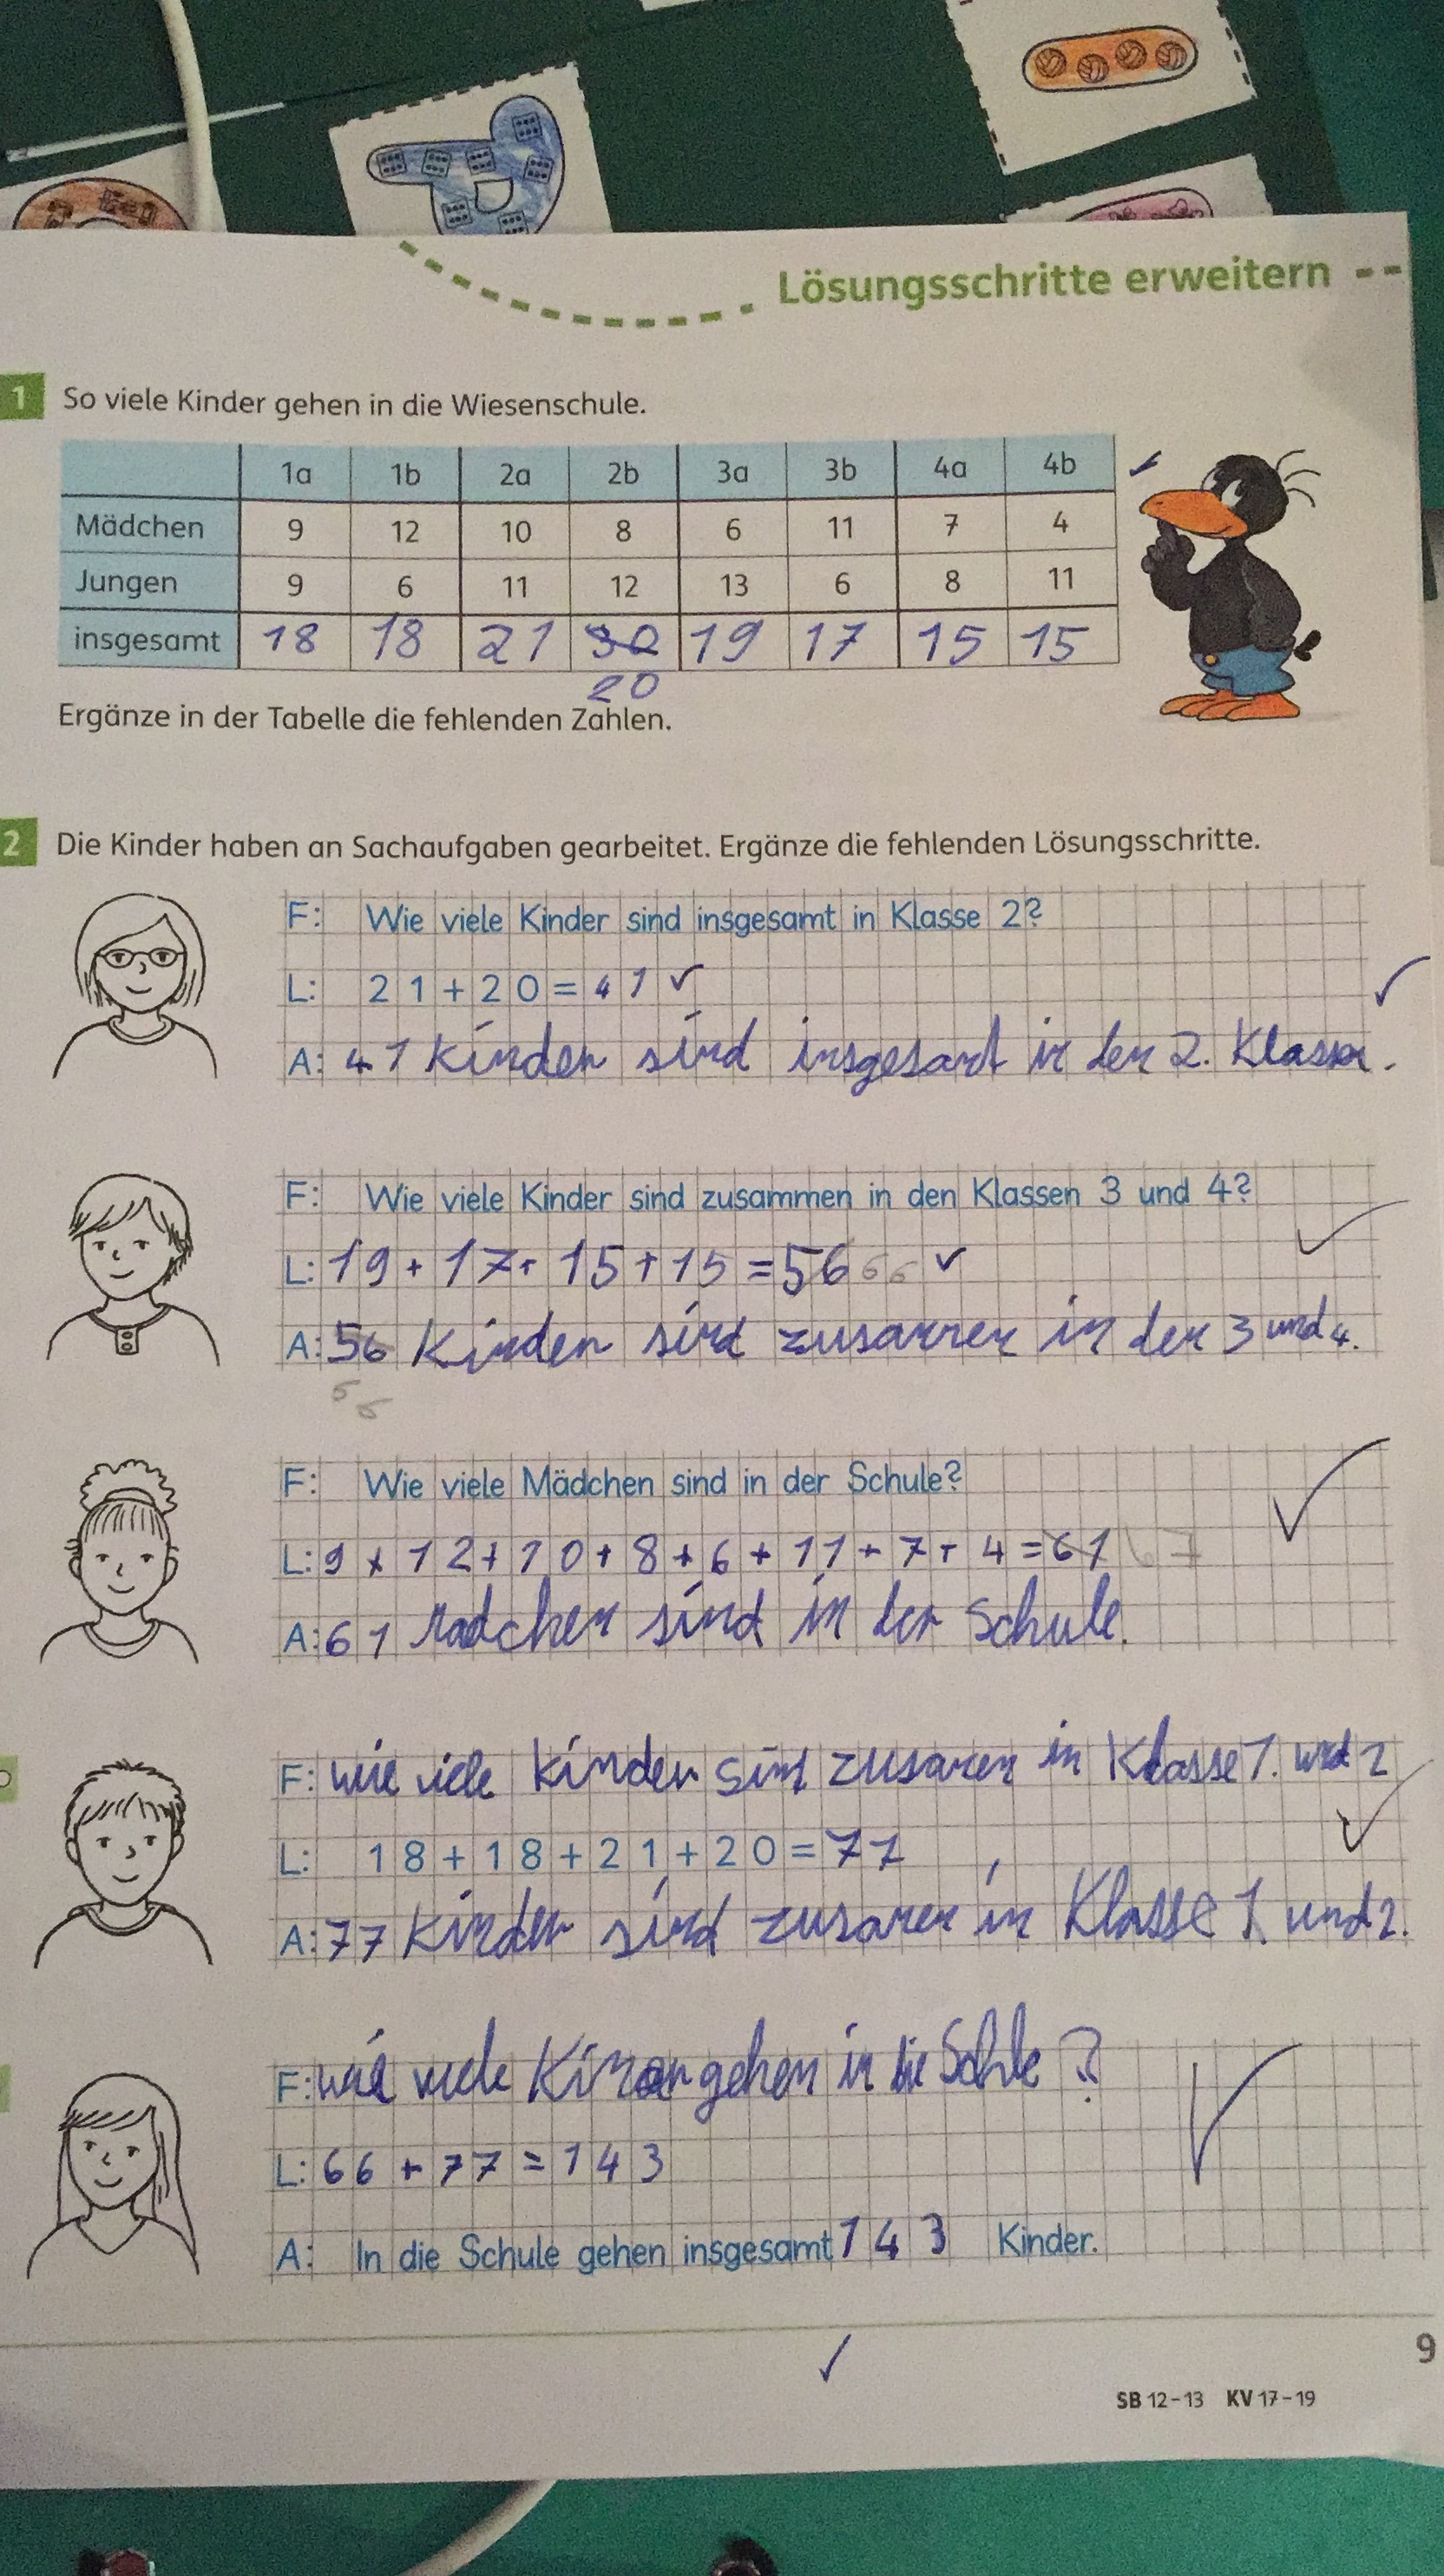 Lösungsschritte erweitern
1 So viele Kinder gehen in die Wiesenschule.
1a 1b 2a 2b 3a 3b 4a 4b
Mädchen 9 12 10 8 6 11 7 4
Jungen 9 6 11 12 13 6 8 11
insgesamt 18 18 21 30 19 17 15 15
20
Ergänze in der Tabelle die fehlenden Zahlen.
2 Die Kinder haben an Sachaufgaben gearbeitet. Ergänze die fehlenden Lösungsschritte.
F: Wie viele Kinder sind insgesamt in Klasse 2?
L: 21+20=41 ✓
A: 41 Kinder sind insgesamt in der 2. Klasse.
F: Wie viele Kinder sind zusammen in den Klassen 3 und 4?
L: 19+17+15+15=56 66 ✓
A: 56 Kinder sind zusammen in der 3 und 4.
F: Wie viele Mädchen sind in der Schule?
L: 9+12+10+8+6+11+7+4=61 67
A: 61 Mädchen sind in der Schule.
F: wie viele Kinder sind zusamen in Klasse 1. und 2
L: 18+18+21+20=77
A: 77 Kinder sind zusamen in Klasse 1. und 2.
F: wie viele Kinder gehen in die Schle?
L: 66+77=143
A: In die Schule gehen insgesamt 143 Kinder.
9
SB 12–13 KV 17–19